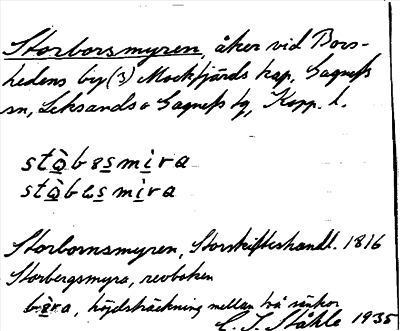 Storborsmyren, åker vid Bors-
hedens by (3) Mockfjärds kap, Gagnefs
sn, Leksands o Gagnefs tg, Kopp. l.
stɑ̀bɛsmira
stɑ̀bɛsmira
Storbornsmyren, Storskifteshandl. 1816
Storbergsmyra, revboken
bɛra, höjdsträckning mellan två sänkor
C. I. Ståhle 1935